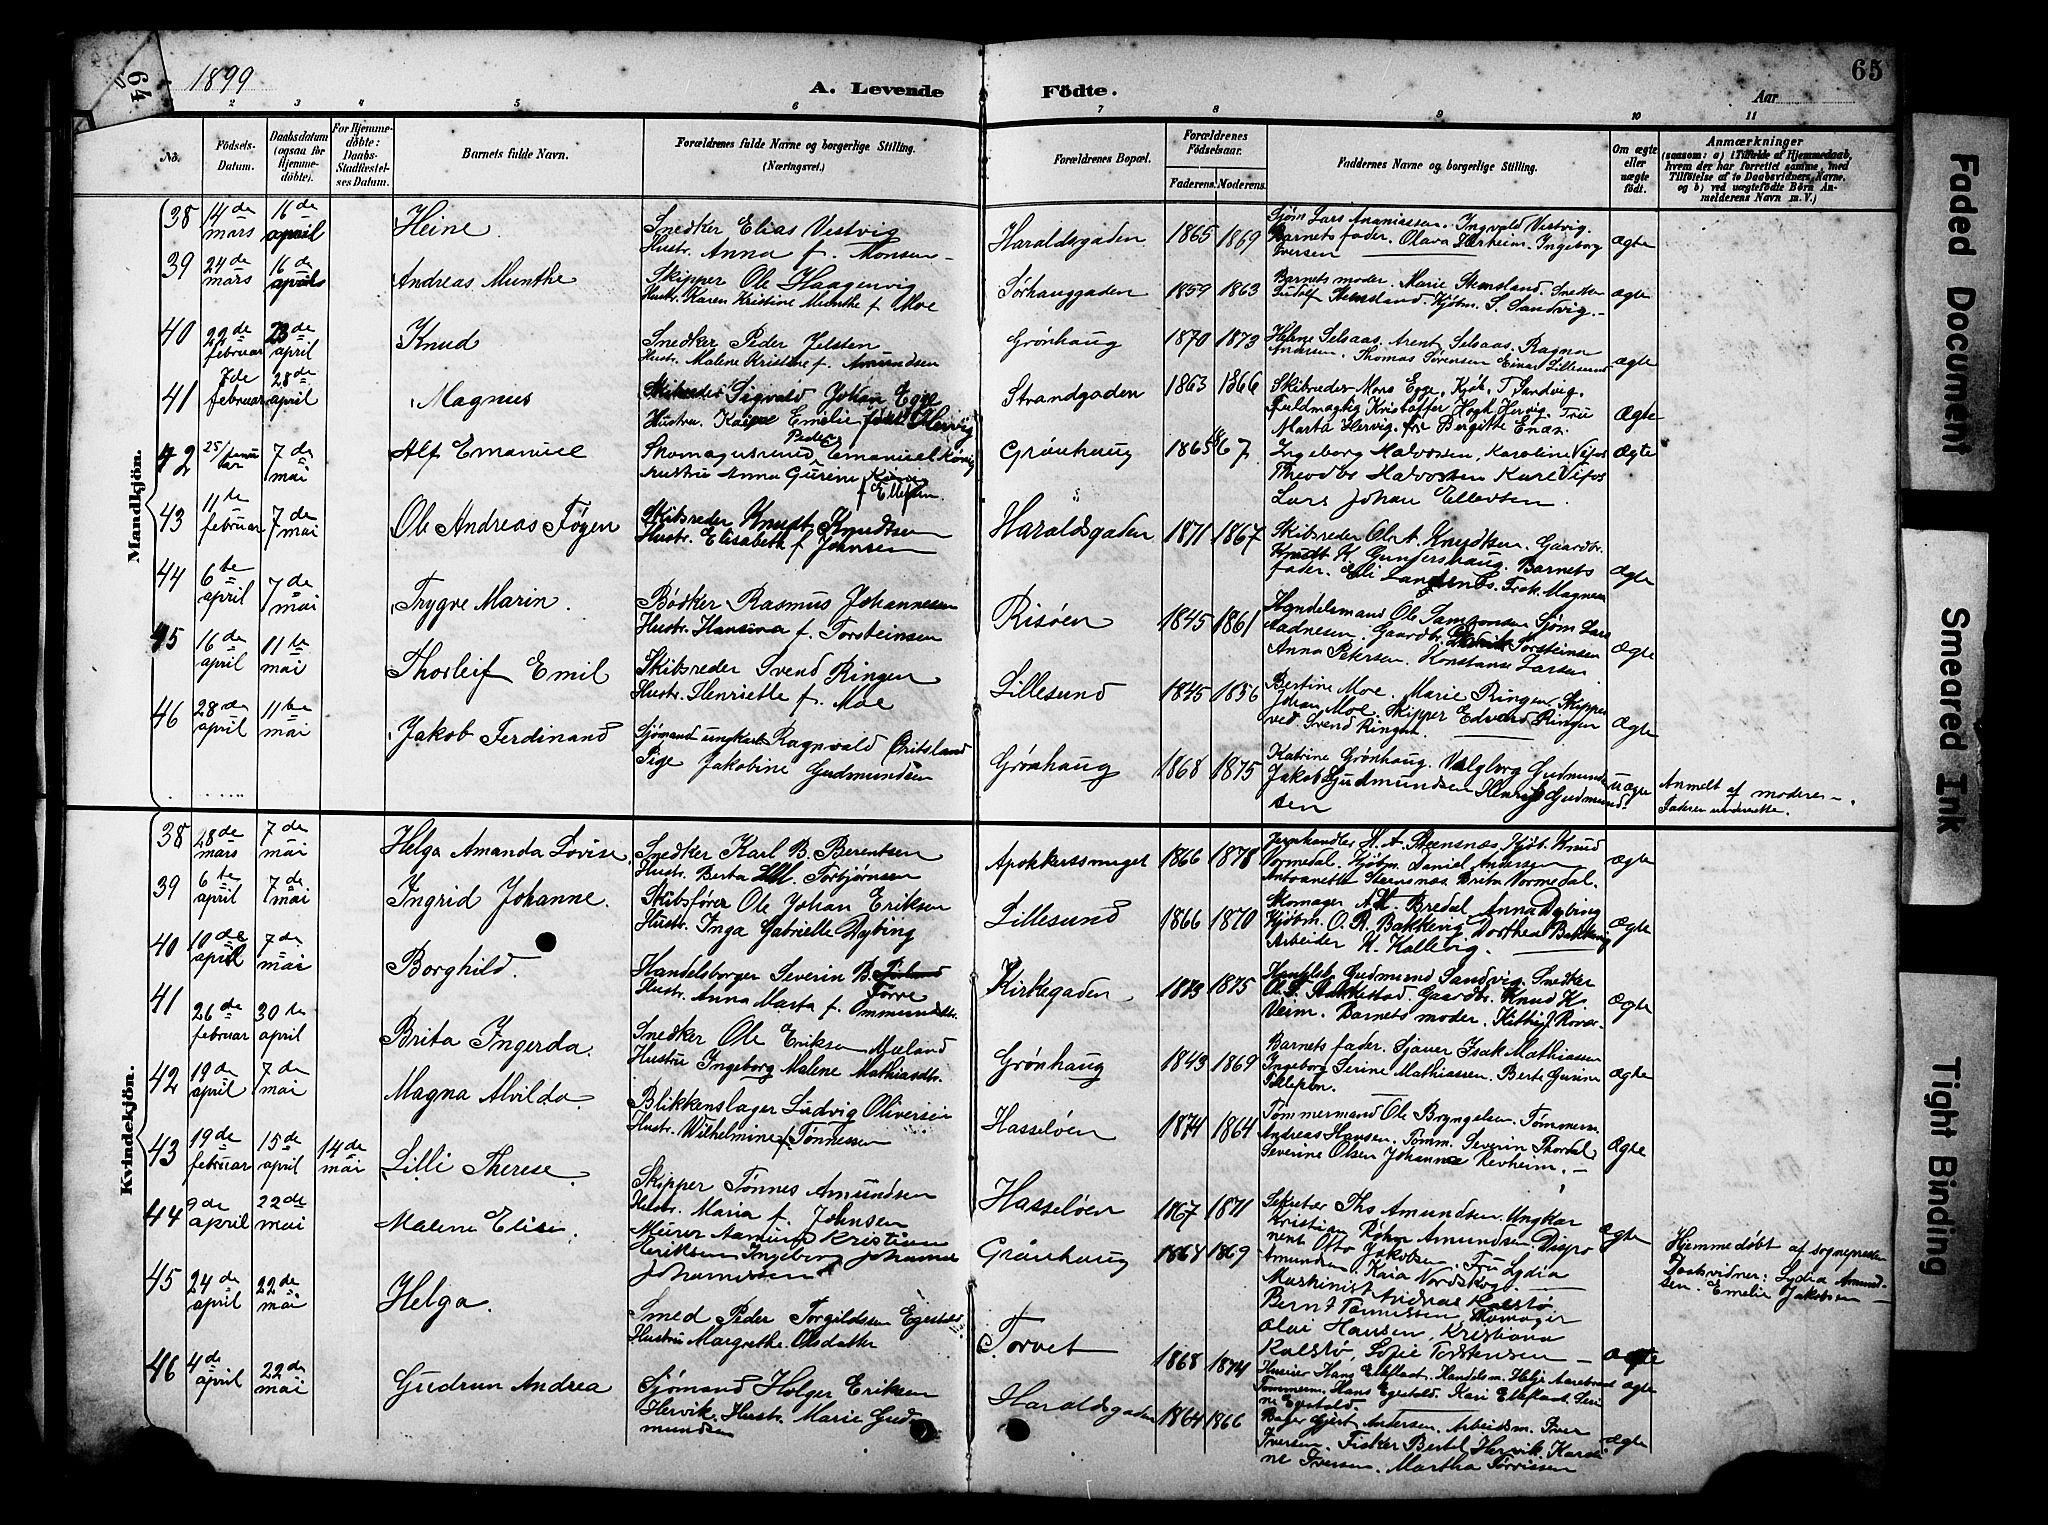 64
1899
A. Levende
Födte.
Aar
65
2 3 4 5 6 7 8 9 10 11
No.
Födsels-Datum.
Daabsdatum (ogsaa for Hjemme-döbte).
For Hjemme-döbte: Daabs-Stadfæstel-ses Datum.
Barnets fulde Navn.
Forældrenes fulde Navne og borgerlige Stilling. (Næringsvei.)
Forældrenes Bopæl.
Forældrenes Födselsaar.
Faderens. Moderens.
Faddernes Navne og borgerlige Stilling.
Om ægte eller uægte födt.
Anmærkninger
(saasom: a) i Tilfælde af Hjemmedaab, hvem der har forrettet samme, med Tilföielse af to Daabsvidners Navne, og b) ved uægtefödte Börn An-melderens Navn m. V.)
Mandkjön.
38 14de mars 16de april Heine. Snedker Elias Vestvig Hustr. Anna f. Monsen Haraldsgaden 1865 1869 Sjøm. Lars Ananiassen. Ingvald Vestvig. Barnets fader. Olava Ingeborg Iversen ægte
39 24de mars 16de april Andreas Munthe Skipper Ole Haagenvig Hustr. Karen Kristine Munthe f. Moe Sørhauggaden 1859 1863 Barnets moder. Marie Stensland. Snedker Stensland. Kjøbm. S. Sandvig. ægte
40 22de februar 23de april Knud Snedker Peder Jelsten Hustr. Malene Kristine f. Amundsen Grønhaug 1870 1873 Helene Selsaas. Arent Selsaas. Ragna Thomas Sørensen Einar Lillesund ægte
41 7de februar 28de april Magnus Skibsreder Sigvald Johan Egge Hustru. Emelie Hervig Strandgaden 1863 1866 Skibsreder Mons Egge. Kjøb. T. Sandvig. Fuldmægtig Kristoffer Hervig. Fru Marta Hervig. fru Bergitte ægte
42 25/ januar 7de mai Alf Emanuel Peder Emanuel König Hustru Anna Gurine f. Ellefsen Grønhaug 1865 67. Ingeborg Halvorsen, Karoline Theodor Halvorsen Karl Lars Johan Ellevsen ægte
43 11te februar 7de mai Ole Andreas Føyen Skibsreder Knudt Knudtsen Hustr. Elisabeth f. Johnsen Haraldsgaden 1871 1867 Skibsreder Ole A. Knudtsen. Gaardbr. Knudt K. Gundershaug. Barnets fader. Frøk. Magnesen ægte
44 6te april 7de mai Trygve Marin. Bødker Rasmus Johannessen Hustr. Hansina f. Torsteinsen Risøen 1845 1861 Handelsmand Ole Samsonsen Sjøm. Lars Aadnesen. Gaardbr. Torsteinsen Anna Petersen. Konstanse Larsen ægte
45 16de april 11te mai Thorleif Emil Skibsreder Svend Ringen Hustr. Henriette f. Moe Lillesund 1845 1856 Bertine Moe. Marie Ringen. Skipper Johan Moe. Skipper Edvard Ringen ved Svend Ringen. ægte
46 28de april 11te mai Jakob Ferdinand Sjømand ungkarl Ragnvald Qvitsland Pige Jakobine Gudmundsen Grønhaug 1868 1875 Katrine Grønhaug. Valgborg Gudmundsen Jakob Gudmundsen Henrik Gudmundsen uægte Anmelt af moderen. Faderen
Kvindekjön.
38 28de mars 7de mai Helga Amanda Lovise Snedker Karl B. Berentsen Hustr. Berta Torbjørnsen Apothekersmuget 1866 1878 Jernhandler H. A. Steensnæs. Kjøb. Knud Vormedal. Kjøbm. Daniel Andersen Antoanette Steensnæs. Brita Vormedal. ægte
39 6te april 7de mai Ingrid Johanne. Skibsfører Ole Johan Eriksen Hustr. Inga Gabrielle Dybing Lillesund 1866 1870 Skomager Bredal Anna Dybing Kjøbm. O. R. Bakkevig Dorthea Bakkevig Arbeider K. Kallevig. ægte
40 10de april 7de mai Borghild. Handelsborger Severin B. Førre Hustr. Anna Marta f. Ommundsdtr. Kirkegaden 1873 1875 Gudmund Sandvig. Snedker Stakkestad. Gaardbr. Knud K. Veim. Barnets moder. ægte
41 26de februar 30te april Brita Ingerda. Snedker Ole Eriksen Mæland Hustru Ingeborg Malene Mathiasdtr. Grønhaug 1843 1869 Barnets fader. Isak Mathiassen Ingeborg Serine Mathiassen. Berte Gurine ægte
42 19de april 7de mai Magna Alvilda. Blikkenslager Ludvig Oliversen Hustr. Wilhelmine f. Tønnessen Hasseløen 1874 1864 Tømmermand Ole Bryngelsen. Tømmerm. Andreas Hansen. Tømm. Severin Thordal Severine Olsen Johanne Revheim. ægte
43 19de februar 15de april 14de mai Lilli Therese. Skipper Tønnes Amundsen Hustr. Maria f. Johnsen Hasseløen 1867 1871 Sekretær Ths Amundsen. Ungkar Kristian Amundsen. Dispo nent Otto Jakobsen. Fru Lydia Amundsen. Kaia Nordskog. ægte Hjemmedøbt af sognepresten Daabsvidner: Lydia Amundsen. Emelie Jakobsen
44 9de april 22de mai Malene Elise. Murer Kristian Henriksen Ingeborg Johanne Johannessen Grønhaug 1868 1869 Maskinist Andreas Kalstø Bernt Tønnesen, Skomager Olai Hansen, Kristiana Kalstø, Sofie Torstensen ægte
45 24de april 22de mai Helga. Smed Peder Torgildssen Hustru Margrethe Olsdatter Torvet 1868 1874 Hans Elleflaat. Handelsm. Helge Tømmerm. Hans Kari Elleflaat. ægte
46 4de april 22de mai Gudrun Andrea Sjømand Holger Eriksen Hervik. Hustr. Marie Gud mundsen Haraldsgaden 1864 1866 Bager Andersen. Arbeidsm. Iver Iversen. Fisker Bertel Hervik. Karoli ne Iversen. Martha Tørrissen ægte
Faded Document
Smeared Ink
Tight Binding